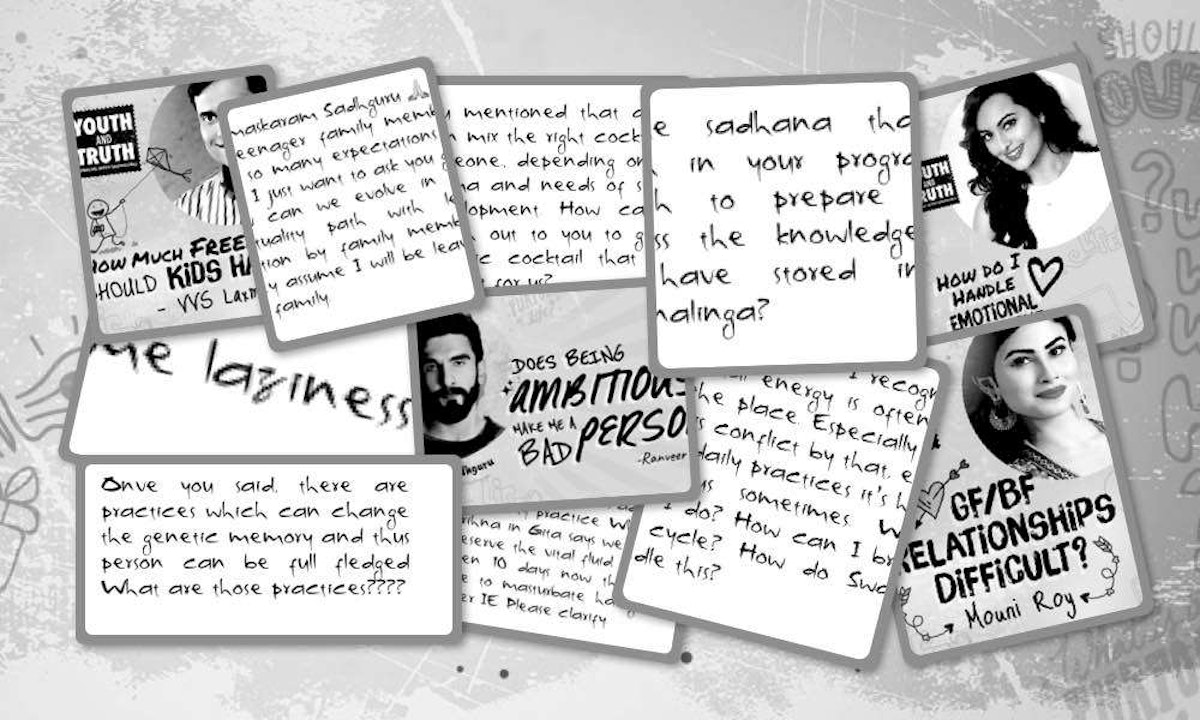 YOUTH
AND
TRUTH
HOW MUCH FREE
SHOULD KIDS HA
- VVS Laxm
maskaram Sadhguru
eenager family memb
so many expectations
I just want to ask you
can we evolve in
tuality path with le
tion by family memb
y assume I will be leav
family
y mentioned that a
n mix the right cock
eone, depending on
na and needs of s
lopment How ca
out to you to g
c cocktail that
for us?
e sadhana tha
in your progra
h to prepare
ss the knowledge
have stored in
nalinga?
YOUTH
AND
TRUTH
HOW DO I
HANDLE
EMOTIONAL
me laziness
DOES BEING
AMBITIOUS
MAKE ME A
BAD PERSO
-Ranveer
dhguru
I recogn
energy is often
he place. Especially
s conflict by that, e
daily practices it's h
us sometimes w
I do? How can I br
cycle? How do Swa
dle this?
GF/BF
RELATIONSHIPS
DIFFICULT?
Mouni Roy
Onve you said, there are
practices which can change
the genetic memory and thus
person can be full fledged
What are those practices????
practice w
ishna in Gita says we
eserve the vital fluid
en 10 days now th
e to masturbate ha
er IE Please clarify